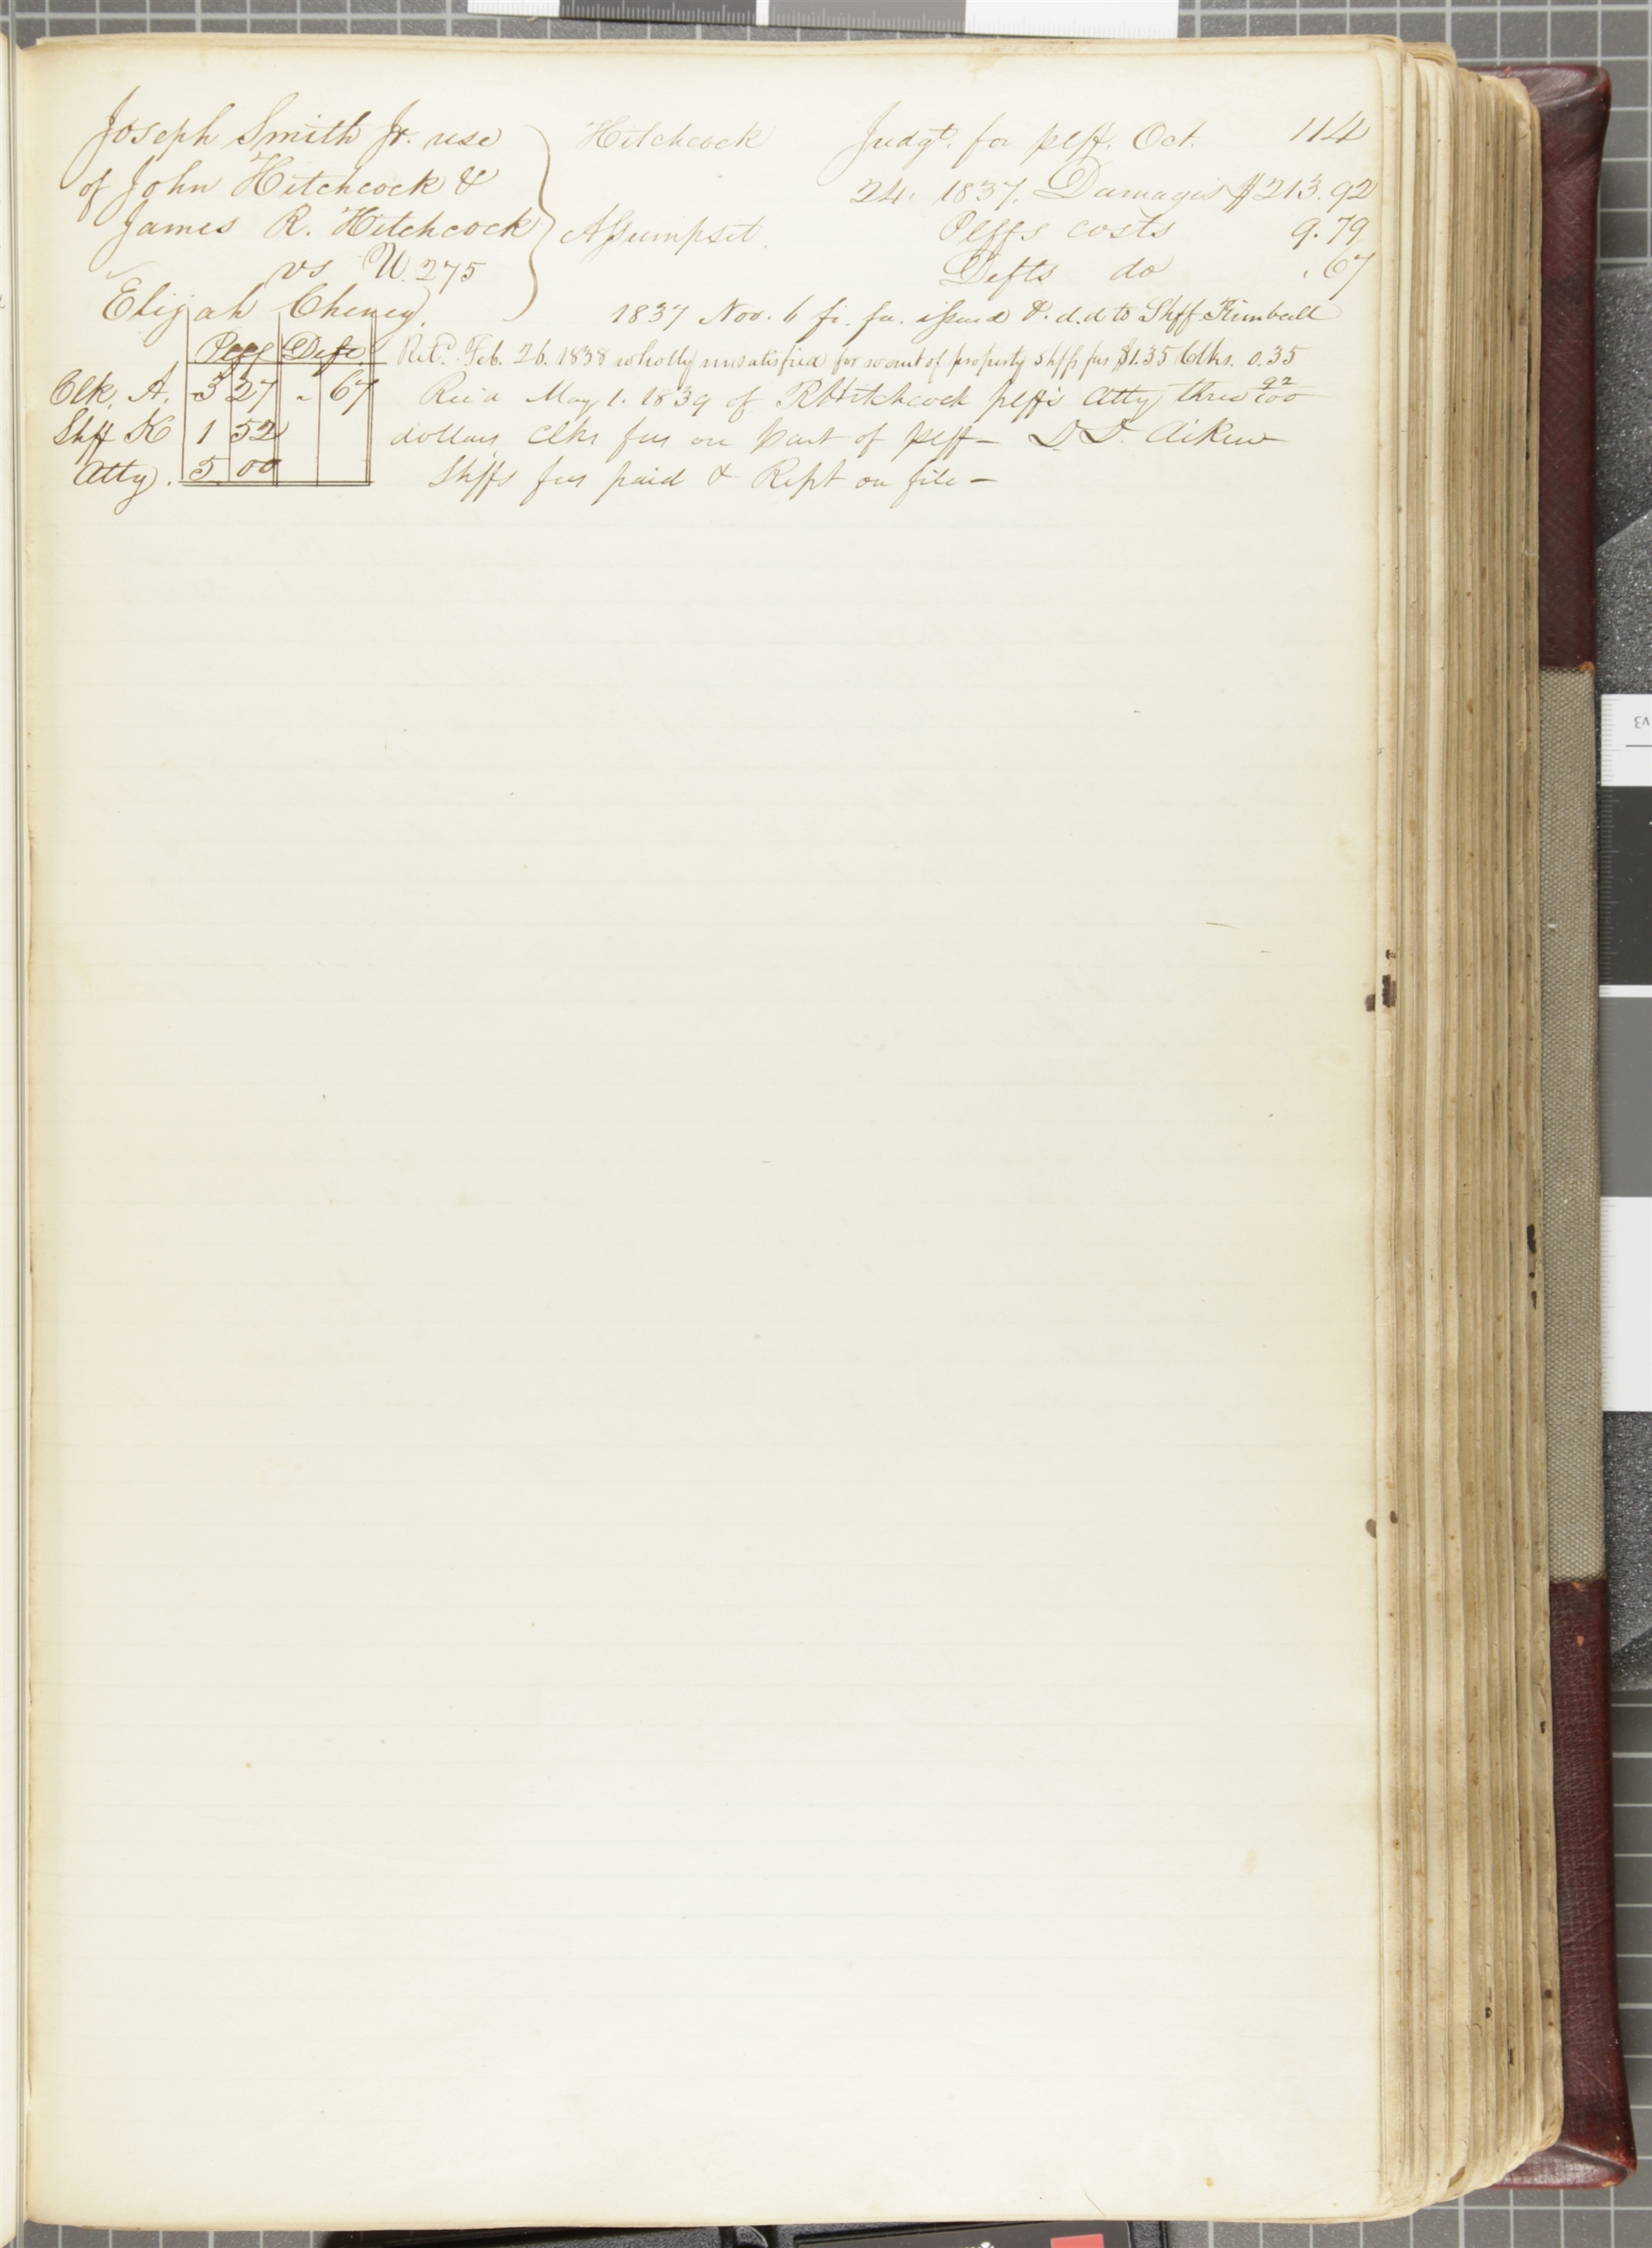 114
Joseph Smith Jr. use
of John Hitchcock &
James R. Hitchcock
vs U. 275
Elijah Cheney.
Hitchcock
Assumpset.
Judgt. for plff. Oct.
24. 1837. Damages $213.92
Plffs costs 9.79
Defts do .67
1837 Nov. 6 fi. fa. issued & d.d to Shff Kimball
Retd. Feb. 26. 1838 wholly unsatisfied for want of property Shffs fees $1.35 Clks. 0.35
Plff Deft.
Clk. A. 3 27 - 67
Shff K 1 52
Atty. 5 00
Rec'd May 1. 1839 of R Hitchcock plffs Atty three 92/100
dollars Clks fees on part of plff – D. D. Aiken
Shffs fees paid & Rcpt on file –